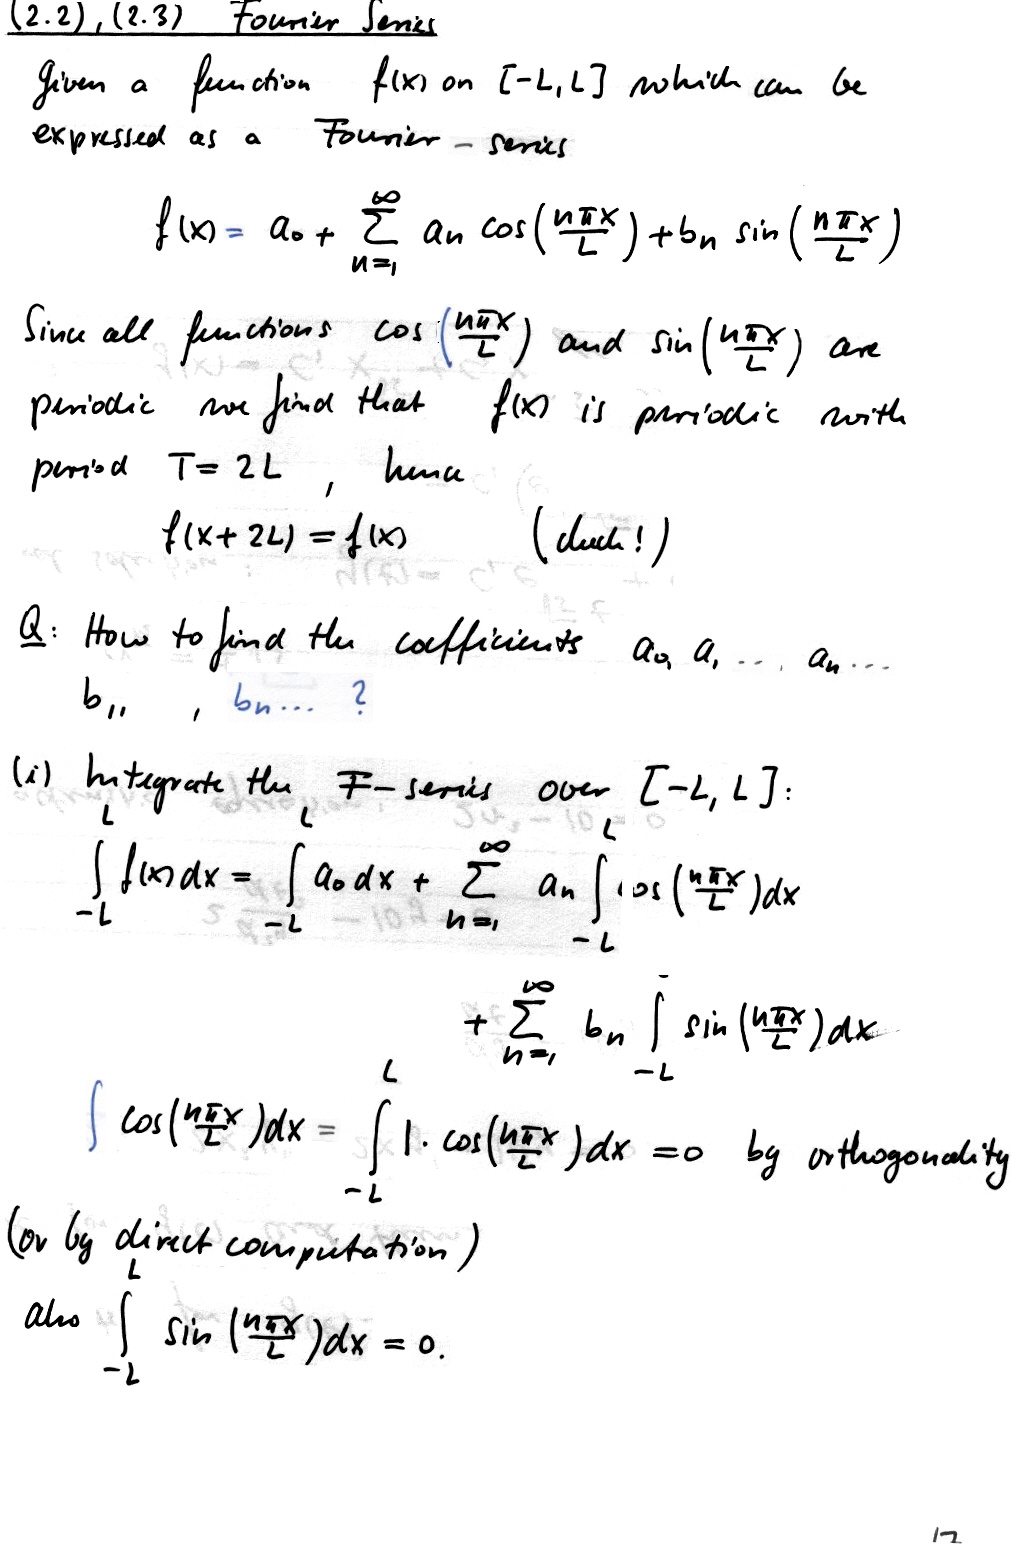 (2.2), (2.3) Fourier Series
Given a function f(x) on [-L, L] which can be
expressed as a Fourier-series
f(x) = a₀ + ∑_{n=1}^{∞} aₙ cos(nπx/L) + bₙ sin(nπx/L)
Since all functions cos(nπx/L) and sin(nπx/L) are
periodic we find that f(x) is periodic with
period T = 2L, hence
f(x+2L) = f(x) (check!)
Q: How to find the coefficients a₀, a₁ ..., aₙ ...
b₁, , bₙ... ?
(i) Integrate the F-series over [-L, L]:
∫_{-L}^{L} f(x)dx = ∫_{-L}^{L} a₀ dx + ∑_{n=1}^{∞} aₙ ∫_{-L}^{L} cos(nπx/L)dx
+ ∑_{n=1}^{∞} bₙ ∫_{-L} sin(nπx/L)dx
∫ cos(nπx/L)dx = ∫_{-L}^{L} 1· cos(nπx/L)dx = 0 by orthogonality
(or by direct computation)
also ∫_{-L}^{L} sin(nπx/L)dx = 0.